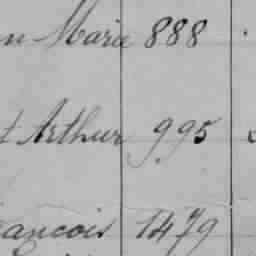 Marie 888
Arthur 995
ancois 1479